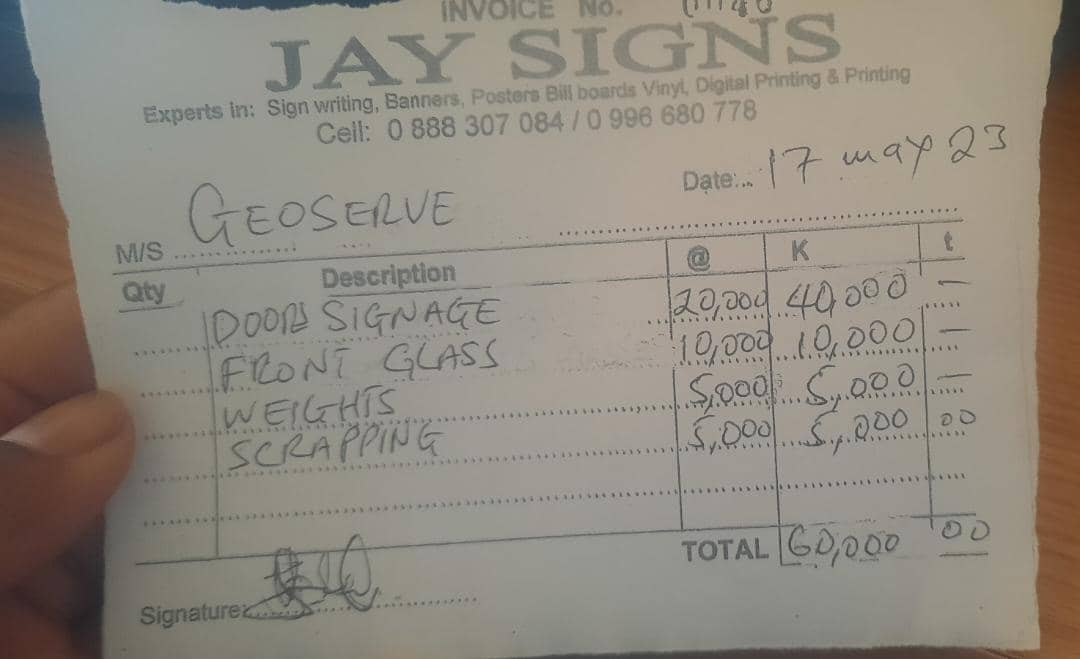 INVOICE No.
JAY SIGNS
Experts in: Sign writing, Banners, Posters Bill boards Vinyl, Digital Printing & Printing
Cell: 0 888 307 084 / 0 996 680 778
Date:... 17 may 23
M/S GEOSERVE
Qty Description @ K t
DOORS SIGNAGE 20,000 40,000 —
FRONT GLASS 10,000 10,000 —
WEIGHTS 5,000 5,000 —
SCRAPPING 5,000 5,000 00
TOTAL 60,000 00
Signature: